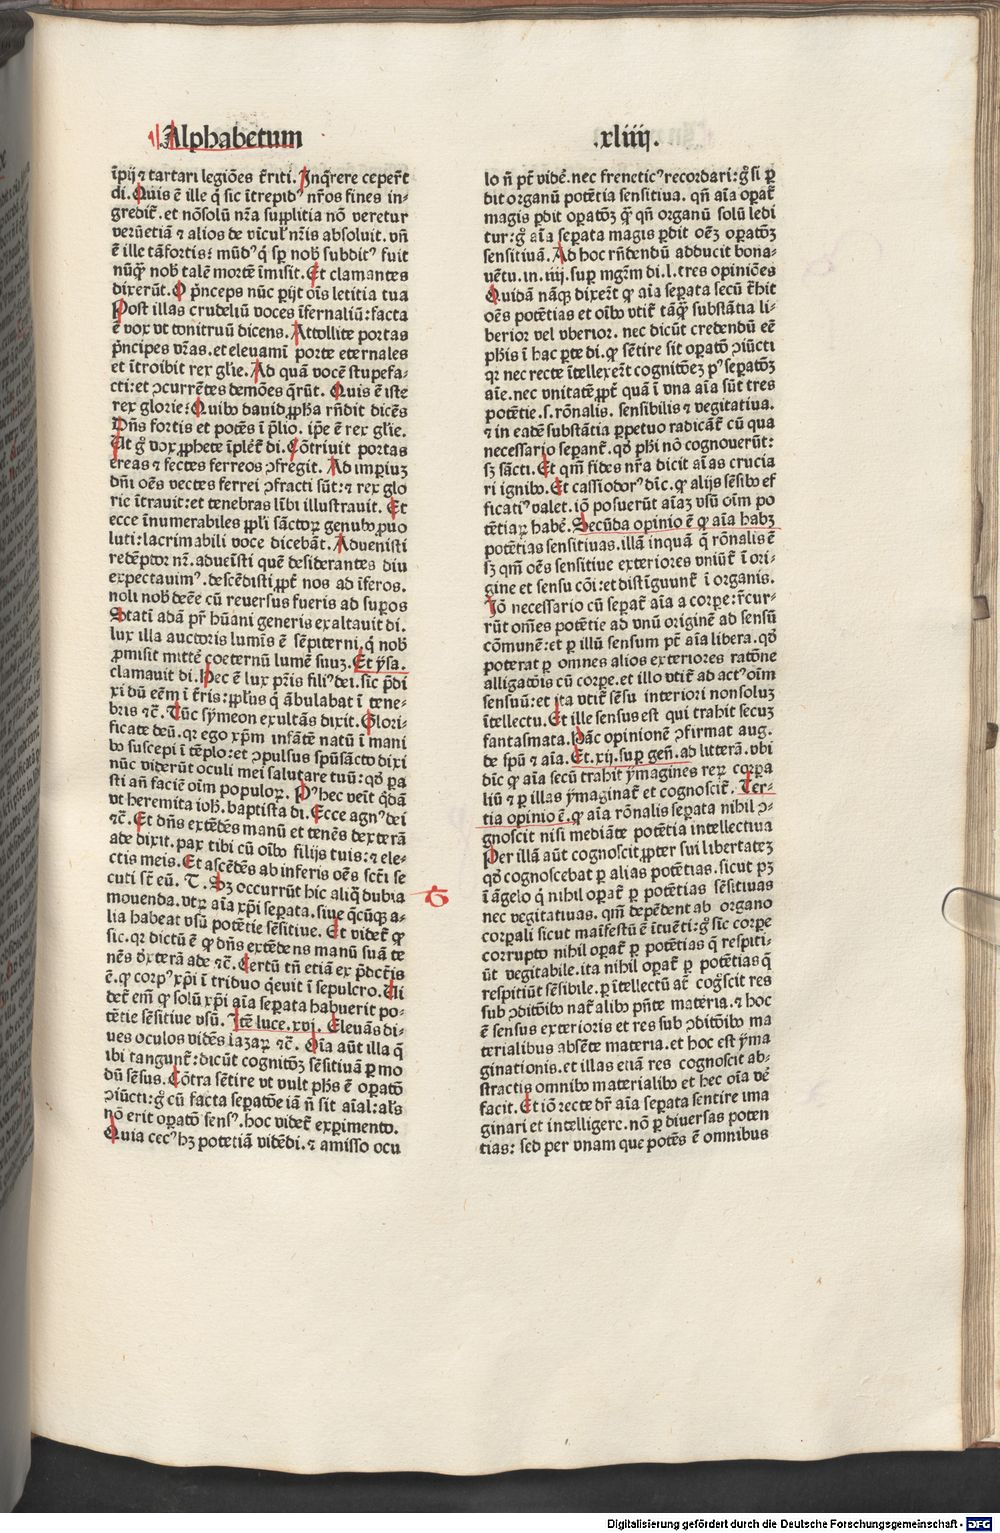 Alphabetum
.xliiij.
īpij ⁊ tartari legiões t̃riti. Jnq̃rere ceper̃t
di. Quis ē ille q̇ sic ītrepidꝰ nr̃os fines in-
gredit̃. et nõsolũ nr̃a supplitia nō veretur
verũetiã ⁊ alios de vīcul' nr̃is absoluit. vñ
ē ille tãfortis: mũdꝰ q̇ sp̲ nob' subditꝰ fuit
nũq̃ȝ nob' talē mortē īmisit. Et clamantes
dixerũt. O p̃nceps nũc perijt oĩs letitia tua
Post illas crudeliũ voces īfernaliũ: facta
ē vox vt tonitruũ dicens. Attollite portas
p̃ncipes vr̃as. et eleuamĩ porte eternales
et ītroibit rex glĩe. Ad quã vocē stupefa-
cti: et ɔcurrẽtes demões q̃rũt. Quis ē iste
rex glorie: Quibꝰ dauid ꝓph̃a rñdit dicēs
Dñs fortis et potēs ī p̃lio. ip̃e ē rex glĩe.
Ait g̊ vox ꝓphete īplēt̃ di. Cõtriuit portas
ereas ⁊ fectes ferreos ɔfregit. Ad imꝑiuȝ
dñi oēs vectes ferrei ɔfracti sũt: ⁊ rex glo
rie ītrauit: et tenebras lĩbi illustrauit. Et
ecce īnumerabiles ꝓpl'i sãctoꝝ genubꝰ ꝓuo
luti: lacrimabili voce dicebãt. Aduenisti
redēptor nr̃. adueĩsti quē desiderantes diu
expectauimꝰ. descēdisti ꝓpt̃ nos ad īferos.
noli nob' deēe cũ reuersus fueris ad suꝑos
Statĩ adã pr̃ hũani generis exaltauit di.
lux illa auctoris lumĩs ē sēpiterni, q̇ nob'
ꝓmisit mittē coeternũ lumē suuȝ. Et ẏsa.
clamauit di. Hec ē lux pr̃is filiꝰ dei. sic p̃di
xi dũ eēm ī t̃ris: ꝓpl'us q̇ ãbulabat ī tene-
bris ⁊c̃. Tũc sẏmeon exultãs dixit. Glori-
ficate deũ. qꝛ ego xp̃m infãtē natũ ī mani
bꝰ suscepi ī tēplo: et ɔpulsus sp̃ũsãcto dixi
nũc viderũt oculi mei salutare tuũ: qd̊ pa
sti añ faciē oĩm populoꝝ. Pꝰ hec veĩt q̇dã
vt heremita ioh̃. baptista di. Ecce agnꝰ dei
⁊c̃. Et dñs extēdēs manũ et tenēs dexterã
ade dixit. pax tibi cũ oĩbꝰ filijs tuis: ⁊ ele-
ctis meis. Et ascēdēs ab inferis oēs sct̃i se
cuti st̃ eũ. T. Sȝ occurrũt hic aliq̃ dubia
mouenda. vtꝝ aĩa xp̃i seꝑata. siue q̄cũqȝ a-
lia habeat vsũ potētie sēsitiue. Et videt̃ ꝙ
sic. qꝛ dictũ ē ꝙ dñs extēdens manũ suã te
nēs dexterã ade ⁊c̃. Certũ tñ etiã ex p̃dct̃is
ē. ꝙ corpꝰ xp̃i ī triduo q̇euit ī sepulcro. Ui
det̃ em̃ ꝙ solũ xp̃i aĩa seꝑata habuerit po-
tētie sēsitiue vsũ. Jtē luce. xvj. Eleuãs di-
ues oculos vidēs lazaꝝ ⁊c̃. Oĩa aũt illa q̃
ibi tangunt̃: dicũt cognitõȝ sēsitiuã ꝑ mo
dũ sēsus. Cõtra sētire vt vult ph̃s ē oꝑatō
ɔiũcti: g̊ cũ facta seꝑatõe iã ñ sit aĩal: al's
nō erit oꝑatō sensꝰ. hoc videt̃ experimento.
Quia cecꝰ hȝ potetiã vidēdi. ⁊ amisso ocu
lo ñ pt̃ vidē. nec freneticꝰ recordari: g̊ si ꝑ
dit organũ potētia sensitiua. qñ aĩa oꝑat̃
magis ꝑdit oꝑatõȝ q̃ȝ qñ organũ solũ ledi
tur: g̊ aĩa seꝑata magis ꝑdit oēȝ oꝑatõȝ
sensitiuã. Ad hoc rñdendũ adducit bona-
uētu. in. iiij. suꝑ mgr̃m di. l. tres opiniões
Quidã nãqȝ dixer̃t ꝙ aĩa seꝑata secũ t̃hit
oēs potētias et oĩbꝰ vtit̃ tãq̃ȝ substãtia li-
berior vel vberior. nec dicũt credendũ eē
ph̃is ī hac ꝑte di. ꝙ sētire sit oꝑatō ɔiũcti
qꝛ nec recte ītellexer̃t cognitõeȝ pꝰ seꝑatõȝ
aĩe. nec vnitatē ꝓpt̃ quã ī vna aĩa sũt tres
potētie. s. rõnalis. sensibilis ⁊ vegitatiua.
⁊ in eadē substãtia ꝑpetuo radicãt̃ cũ qua
necessario seꝑant̃. qd̊ ph̃i nō cognouerũt:
sȝ sãcti. Et qm̃ fides nr̃a dicit aĩas crucia
ri ignibꝰ. Et cassiodorꝰ dĩc. ꝙ alijs sēsibꝰ ef
ficatiꝰ valet. iõ posuerũt aĩaȝ vsũ oĩm po
tētiaꝝ habē. Secũda opinio ē ꝙ aĩa habȝ
potētias sensitiuas. illã inquã q̃ rõnalis ē
sȝ qm̃ oēs sensitiue exteriores vniũt̃ ī ori-
gine et sensu cõi: et distīguunt̃ ī organis.
Jõ necessario cũ seꝑat̃ aĩa a corꝑe: r̃cur-
rũt om̃es potētie ad vnũ originē ad sensũ
cõmunē: et ꝑ illũ sensum pt̃ aĩa libera. qd̊
poterat ꝑ omnes alios exteriores ratōne
alligatõis cũ corꝑe. et illo vtit̃ ad actꝰ oĩm
sensuũ: et ita vtit̃ sēsu interiori nonsoluȝ
ītellectu. Et ille sensus est qui trahit secuȝ
fantasmata. Hãc opinionē ɔfirmat aug.
de sp̃u ⁊ aĩa. Et. xij. suꝑ geñ. ad litterã. vbi
dĩc ꝙ aĩa secũ trahit ẏmagines reꝝ corꝑa
liũ ⁊ ꝑ illas ẏmaginat̃ et cognoscit̃. Ter-
tia opinio ē. ꝙ aĩa rõnalis seꝑata nihil ɔ-
gnoscit nisi mediãte potētia intellectiua
Per illã aũt cognoscit ꝓpter sui libertateȝ
qd̊ cognoscebat ꝑ alias potētias. sicut pȝ
ī ãgelo q̇ nihil oꝑat̃ ꝑ potētias sēsitiuas
nec vegitatiuas. qm̃ depēdent ab organo
corꝑali sicut maĩfestũ ē ītuēti: g̊ sic corꝑe
corrupto nihil oꝑat̃ ꝑ potētias q̃ respiti-
ũt vegitabile. ita nihil oꝑat̃ ꝑ potētias q̃
respitiũt sēsibile. ꝑ ītellectũ at̃ cog̊scit res
sub ɔditõibꝰ nat̃alibꝰ pñte materia. ⁊ hoc
ē sensus exterioris et res sub ɔditõibꝰ ma
terialibus absēte materia. et hoc est ẏma
ginationis. et illas etiã res cognoscit ab-
stractis omnibꝰ materialibꝰ et hec oĩa vē
facit. Et iõ recte dr̃ aĩa seꝑata sentire ima
ginari et intelligere. nō ꝑ diuersas poten
tias: sed per vnam que potēs ē omnibus
T
Digitalisierung gefördert durch die Deutsche Forschungsgemeinschaft - DFG